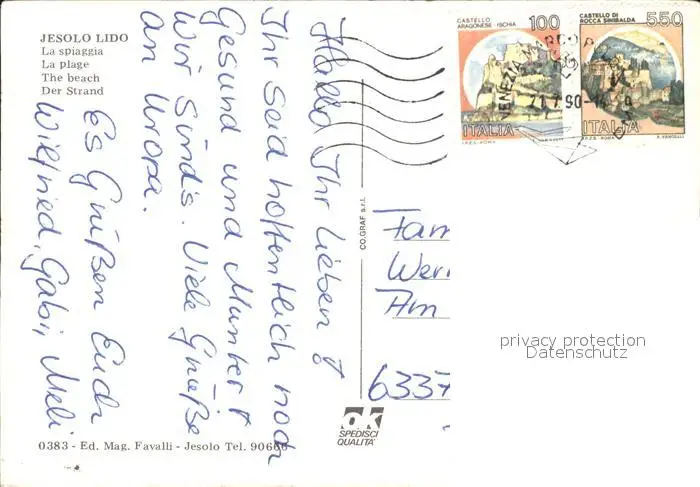 JESOLO LIDO
La spiaggia
La plage
The beach
Der Strand
Hallo Ihr Lieben!
Ihr seid hoffentlich noch
Gesund und Munter
Wir sind's. Viele Grüße
an Uropa.
Es Grüßen Euch
Wilfried, Gabi, Meli
0383 - Ed. Mag. Favalli - Jesolo Tel. 90666
CO.GRAF s.r.l.
OK
SPEDISCI
QUALITA'
CASTELLO
ARAGONESE ISCHIA
100
ITALIA
I.P.Z.S.-ROMA
CASTELLO DI
ROCCA SINIBALDA
550
ITALIA
I.P.Z.S.-ROMA
VENEZIA MARCO P
90
Fam
Wer
Am
6337
privacy protection
Datenschutz